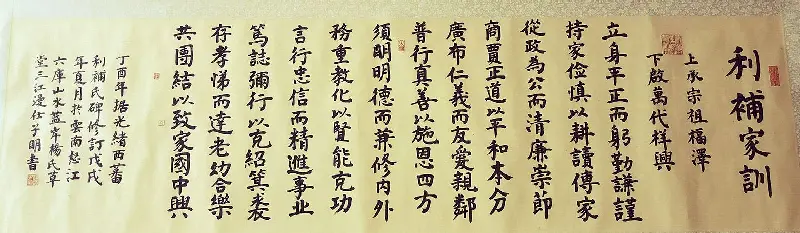 利補家訓
上承宗祖福澤
下啟萬代祥興
立身平正而躬勤謙謹
持家儉慎以耕讀傳家
從政為公而清廉崇節
商賈正道以平和本分
廣布仁義而友愛親鄰
普行真善以施恩四方
須明明德而兼修內外
務重教化以賢能克功
言行忠信而精進事業
篤誌彌行以克紹箕裘
存孝悌而達老幼合樂
共團結以致家國中興
丁酉年據光緒西蕃
利補氏碑修訂戊戌
年夏月於雲南怒江
六庫山水藍岸楊氏草
堂三江漫仕子明書